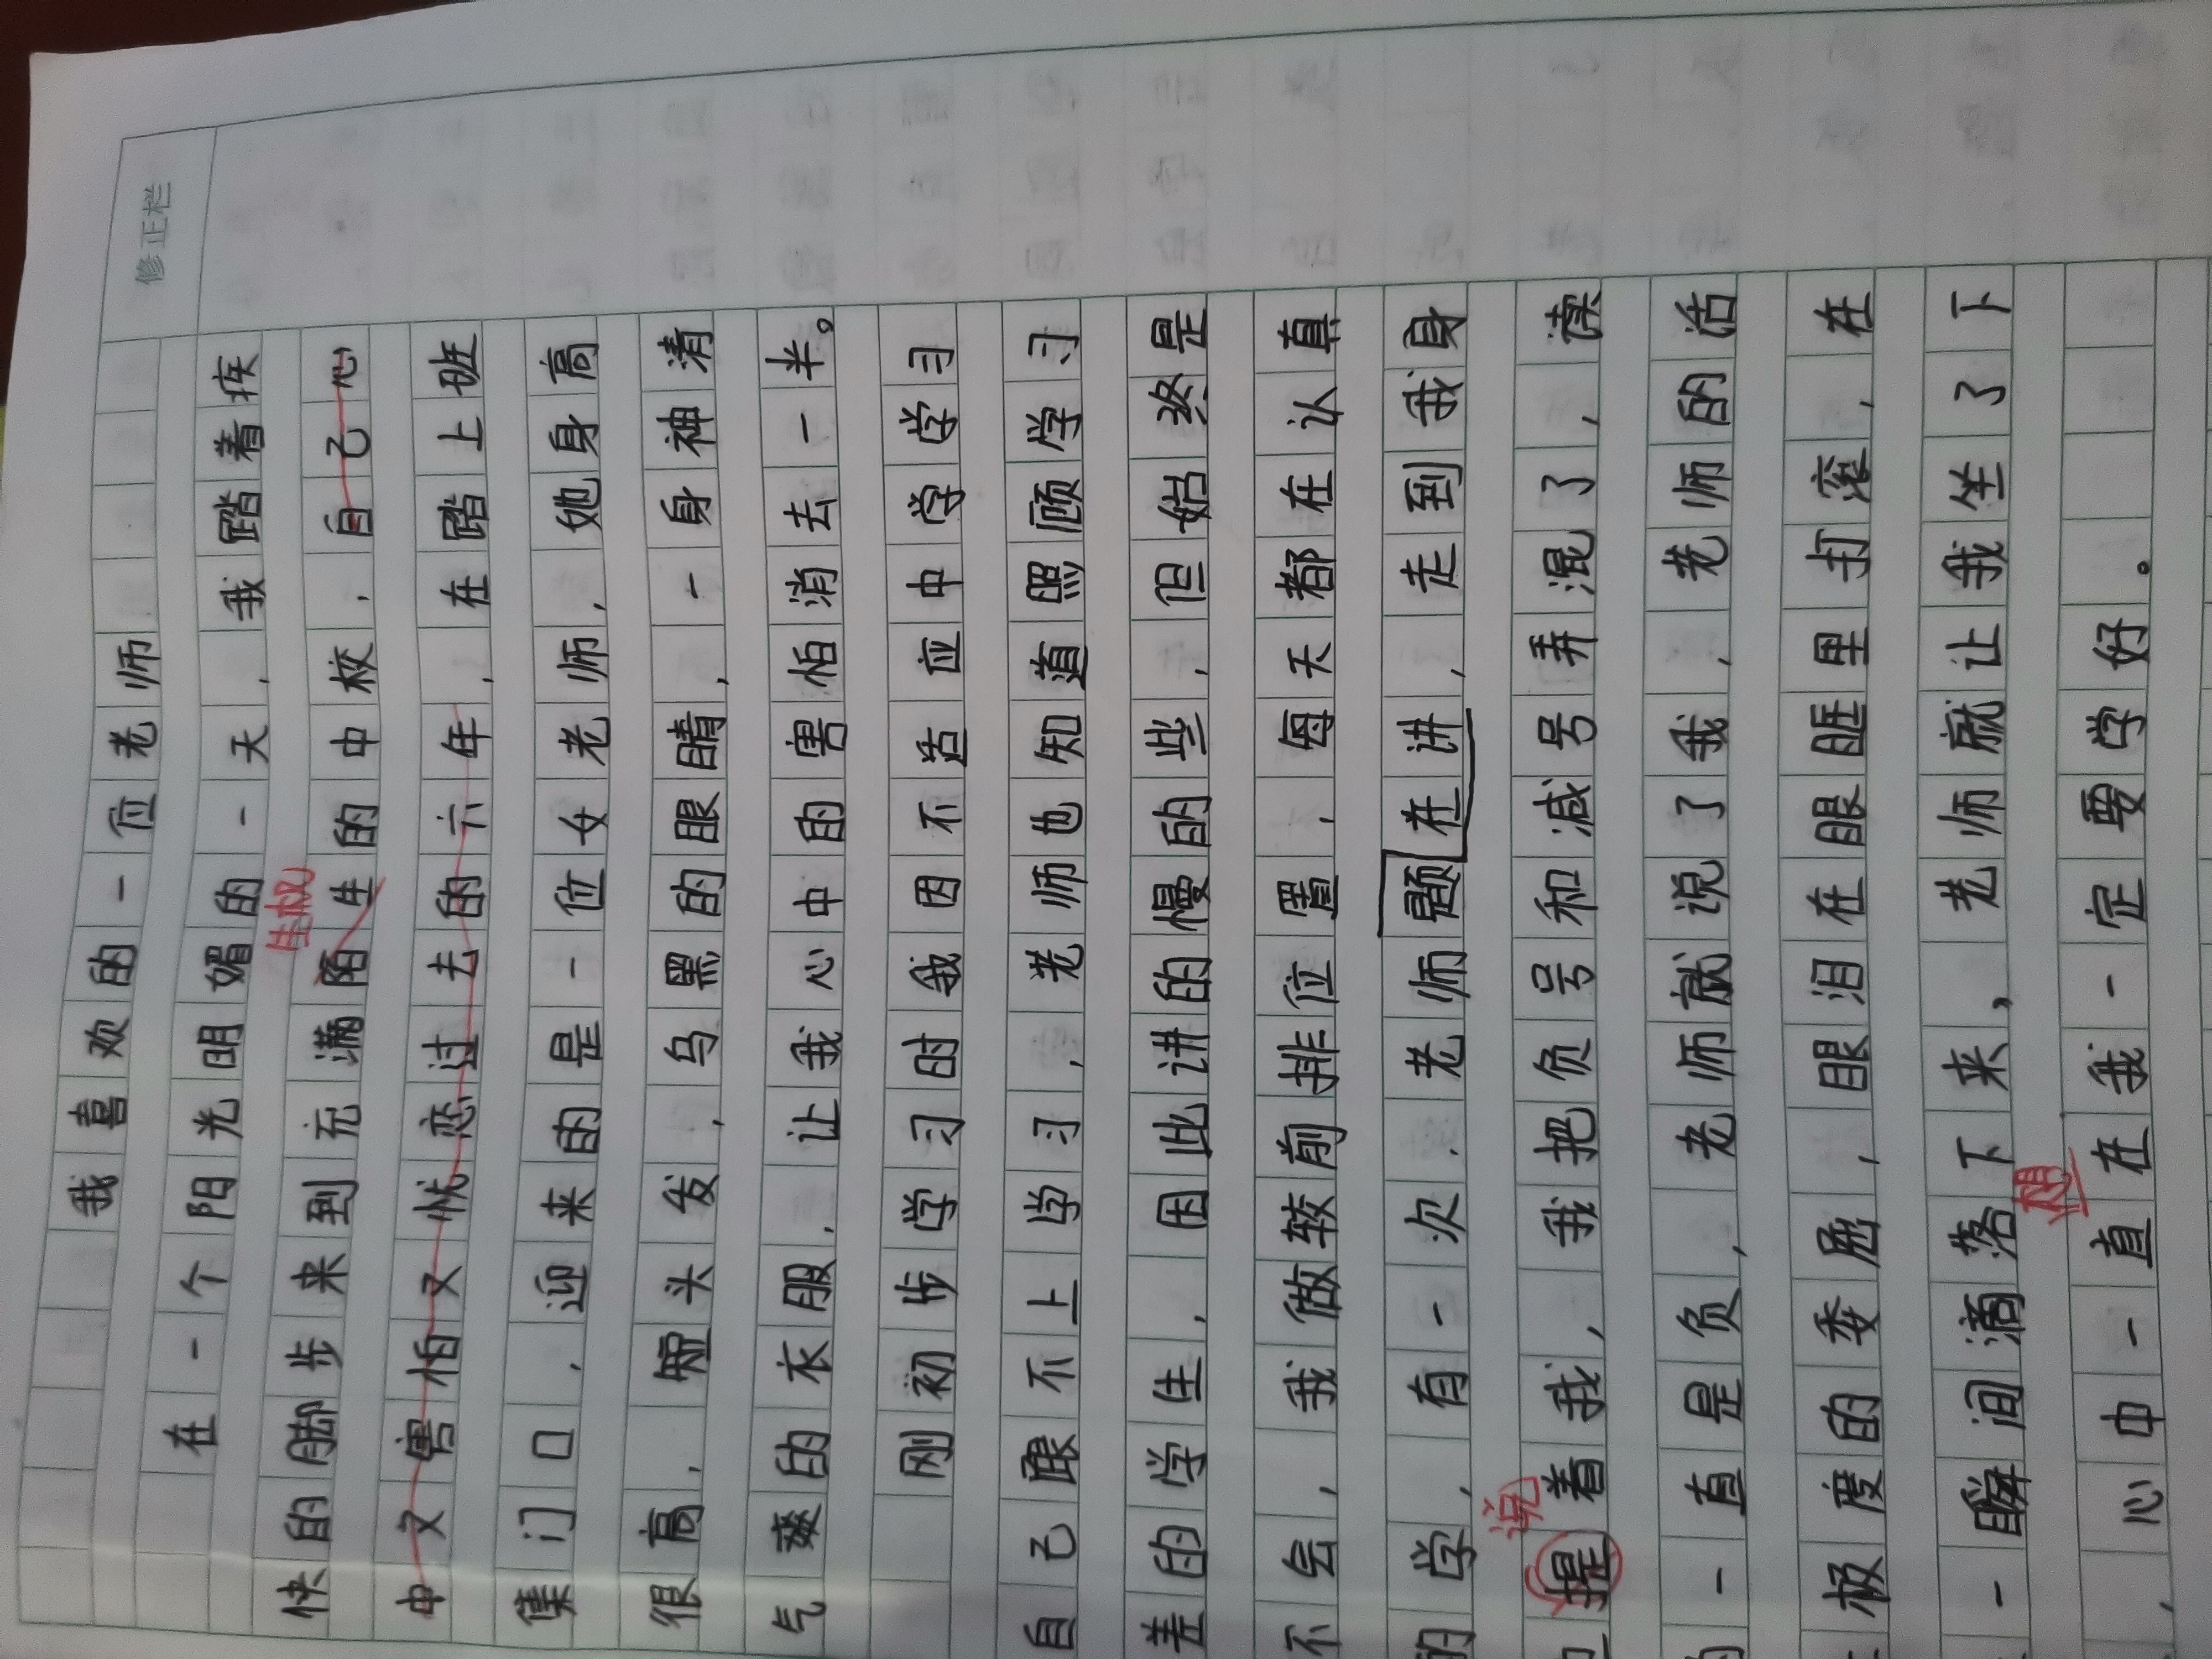 修正栏
我喜欢的一位老师
在一个阳光明媚的一天，我踏着疾
生机
快的脚步来到充满陌生的中校，自己心
中又害怕又忧恋过去的六年，在踏上班
集门口，迎来的是一位女老师，她身高
很高，短头发，乌黑的眼睛，一身神清
气爽的衣服，让我心中的害怕消去一半。
刚初步学习时我因不适应中学学习
自己跟不上学习，老师也知道照顾学习
差的学生，因此讲的慢的些，但始终是
不会，我做较前排位置，每天都在认真
的学，有一次，老师题在讲，走到我身
说
提着我，我把负号和减号弄混了，误
的一直是负，老师就说了我，老师的话
极度的委屈，眼泪在眼眶里打滚，在
一瞬间滴落下来，老师就让我坐了下
想
，心中一直在我一定要学好。